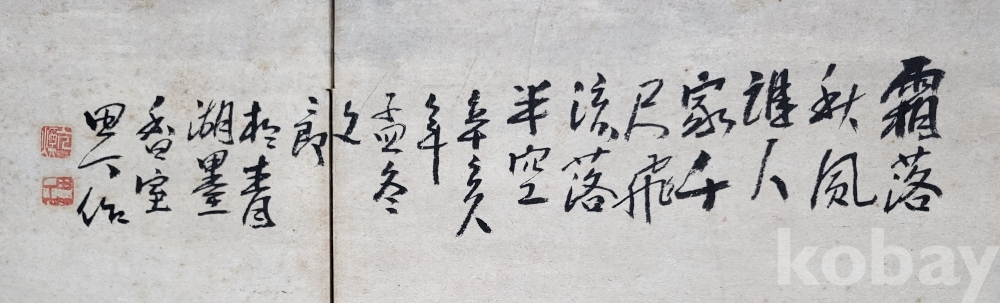 霜落
秋風
誰人
家千
尺飛
流落
半空
辛亥
年
孟冬
之
節
於青
湖墨
香室
作
kobay